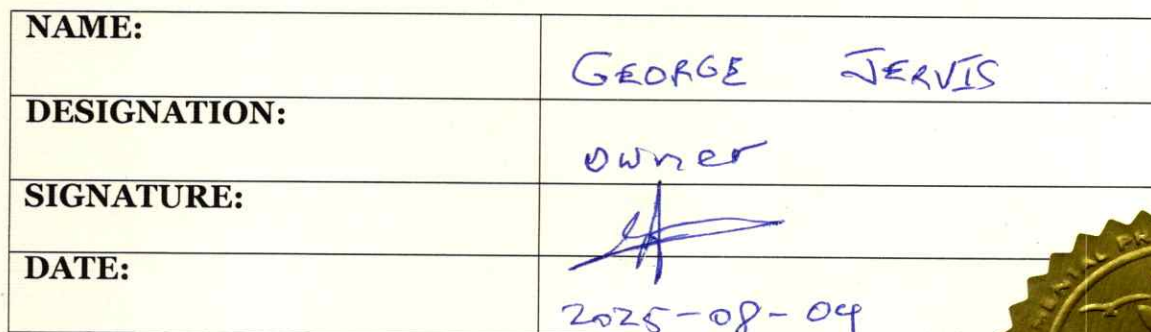 NAME: GEORGE JERVIS
DESIGNATION: owner
SIGNATURE:
DATE: 2025-08-04